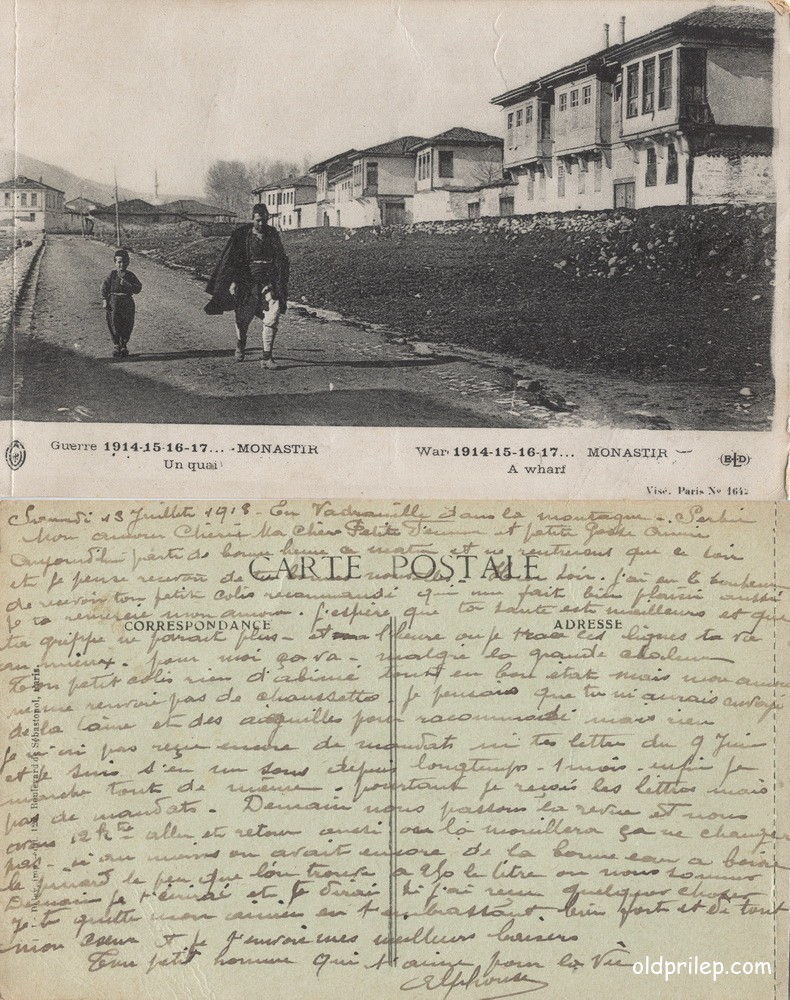 Guerre 1914-15-16-17... - MONASTIR
Un quai
War 1914-15-16-17... MONASTIR
A wharf
ELD
Visé. Paris No 164
Samedi 13 Juillet 1918 - En Vadrouille dans la montagne - Serbie
Mon amour Cherie Ma Chère Petite Femme et petite Gosse
aujourd'hui parti de bonne heure ce matin et ne rentrerons que ce soir
et je pense recevoir de soir. j'ai eu le bonheur
de recevoir ton petit colis recommandé qui me fait bien plaisir aussi
je te remercie mon amour. j'espère que ta santé est meilleure et que
CARTE POSTALE
CORRESPONDANCE
ADRESSE
ta grippe ne parait plus - et l'heure ou je trace ces lignes ta vie
au mieux. pour moi ça va - malgré la grande chaleur
Ton petit colis rien d'abimé tout en bon état mais mon amour
ne me renvoie pas de chaussettes je pensais que tu m'aurais envoyé
de la laine et des aiguilles pour raccommodé mais rien
je n'ai pas reçu encore de mandats ni tes lettre du 9 Juin
et je suis s'en un sous depuis longtemps - 1 mois - enfin je
marche tout de même - pourtant je reçois les lettres mais
pas de mandats. Demain nous passons la revue et nous
avons 12 k aller et retour aussi on la mouillera ça ne changer
pas - si au moins on avait encore de la bonne eau a boire
le pinard le peu que l'on trouve a le litre on nous
Demain je t'écrirai et je dirai si j'ai reçu quelque chose
Je te quitte mon aimée en t'embrassant bien fort et de tout
mon coeur et je t'envoie mes meilleurs baisers
Ton petit homme qui t'aime pour la Vie
Alphonse
Boulevard de Sébastopol, Paris.
oldprilep.com